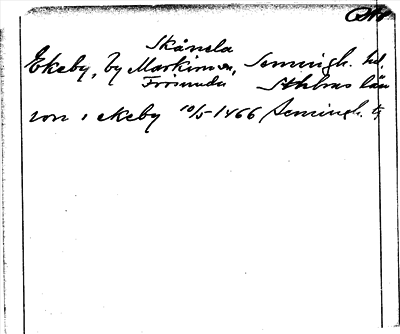 Skånela
Ekeby, by Markim sn, Seminghs. hd,
Frösunda Sthlms län
von i ekeby 10/5 1466 Seminghs.